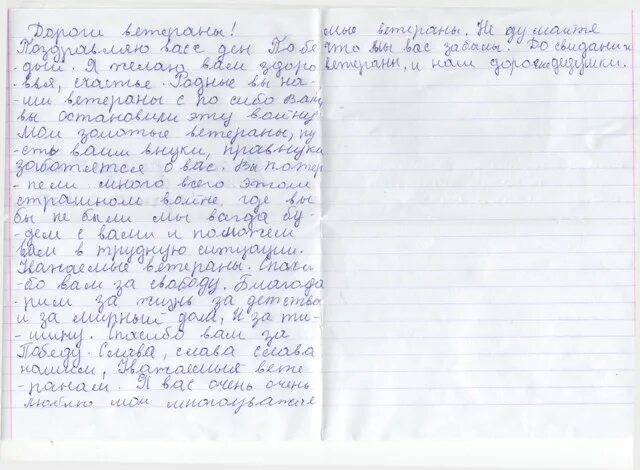 Дороги ветераны!
Поздравляю васс ден Побе
дый. Я желаю вам здоро
-вья, счастье. Родные вы на-
ши ветераны с по сибо Вам
вы остановили эту войну
Мои золотые ветераны, пу
-сть ваши внуки, правнуки
заботятся о вас. Вы потер
-пели много всего этом
страшном войне где вы
бы не были мы всегда бу-
-дем с вами и поможем
вам в трудную ситуации.
Уважаемые ветераны. Спаси
-бо вам за свободу. Благода
-рим за жизнь за детства
и за мирный дом, И за ти-
-шину. Спасибо вам за
Победу. Слава, слава слава
нашим, Уважаемые вете
-ранам. Я вас очень очень
люблю мои многоуважае
мые ветераны. Не думайте
что мы вас забыли. До свидани
ветераны, и наш дедушки.